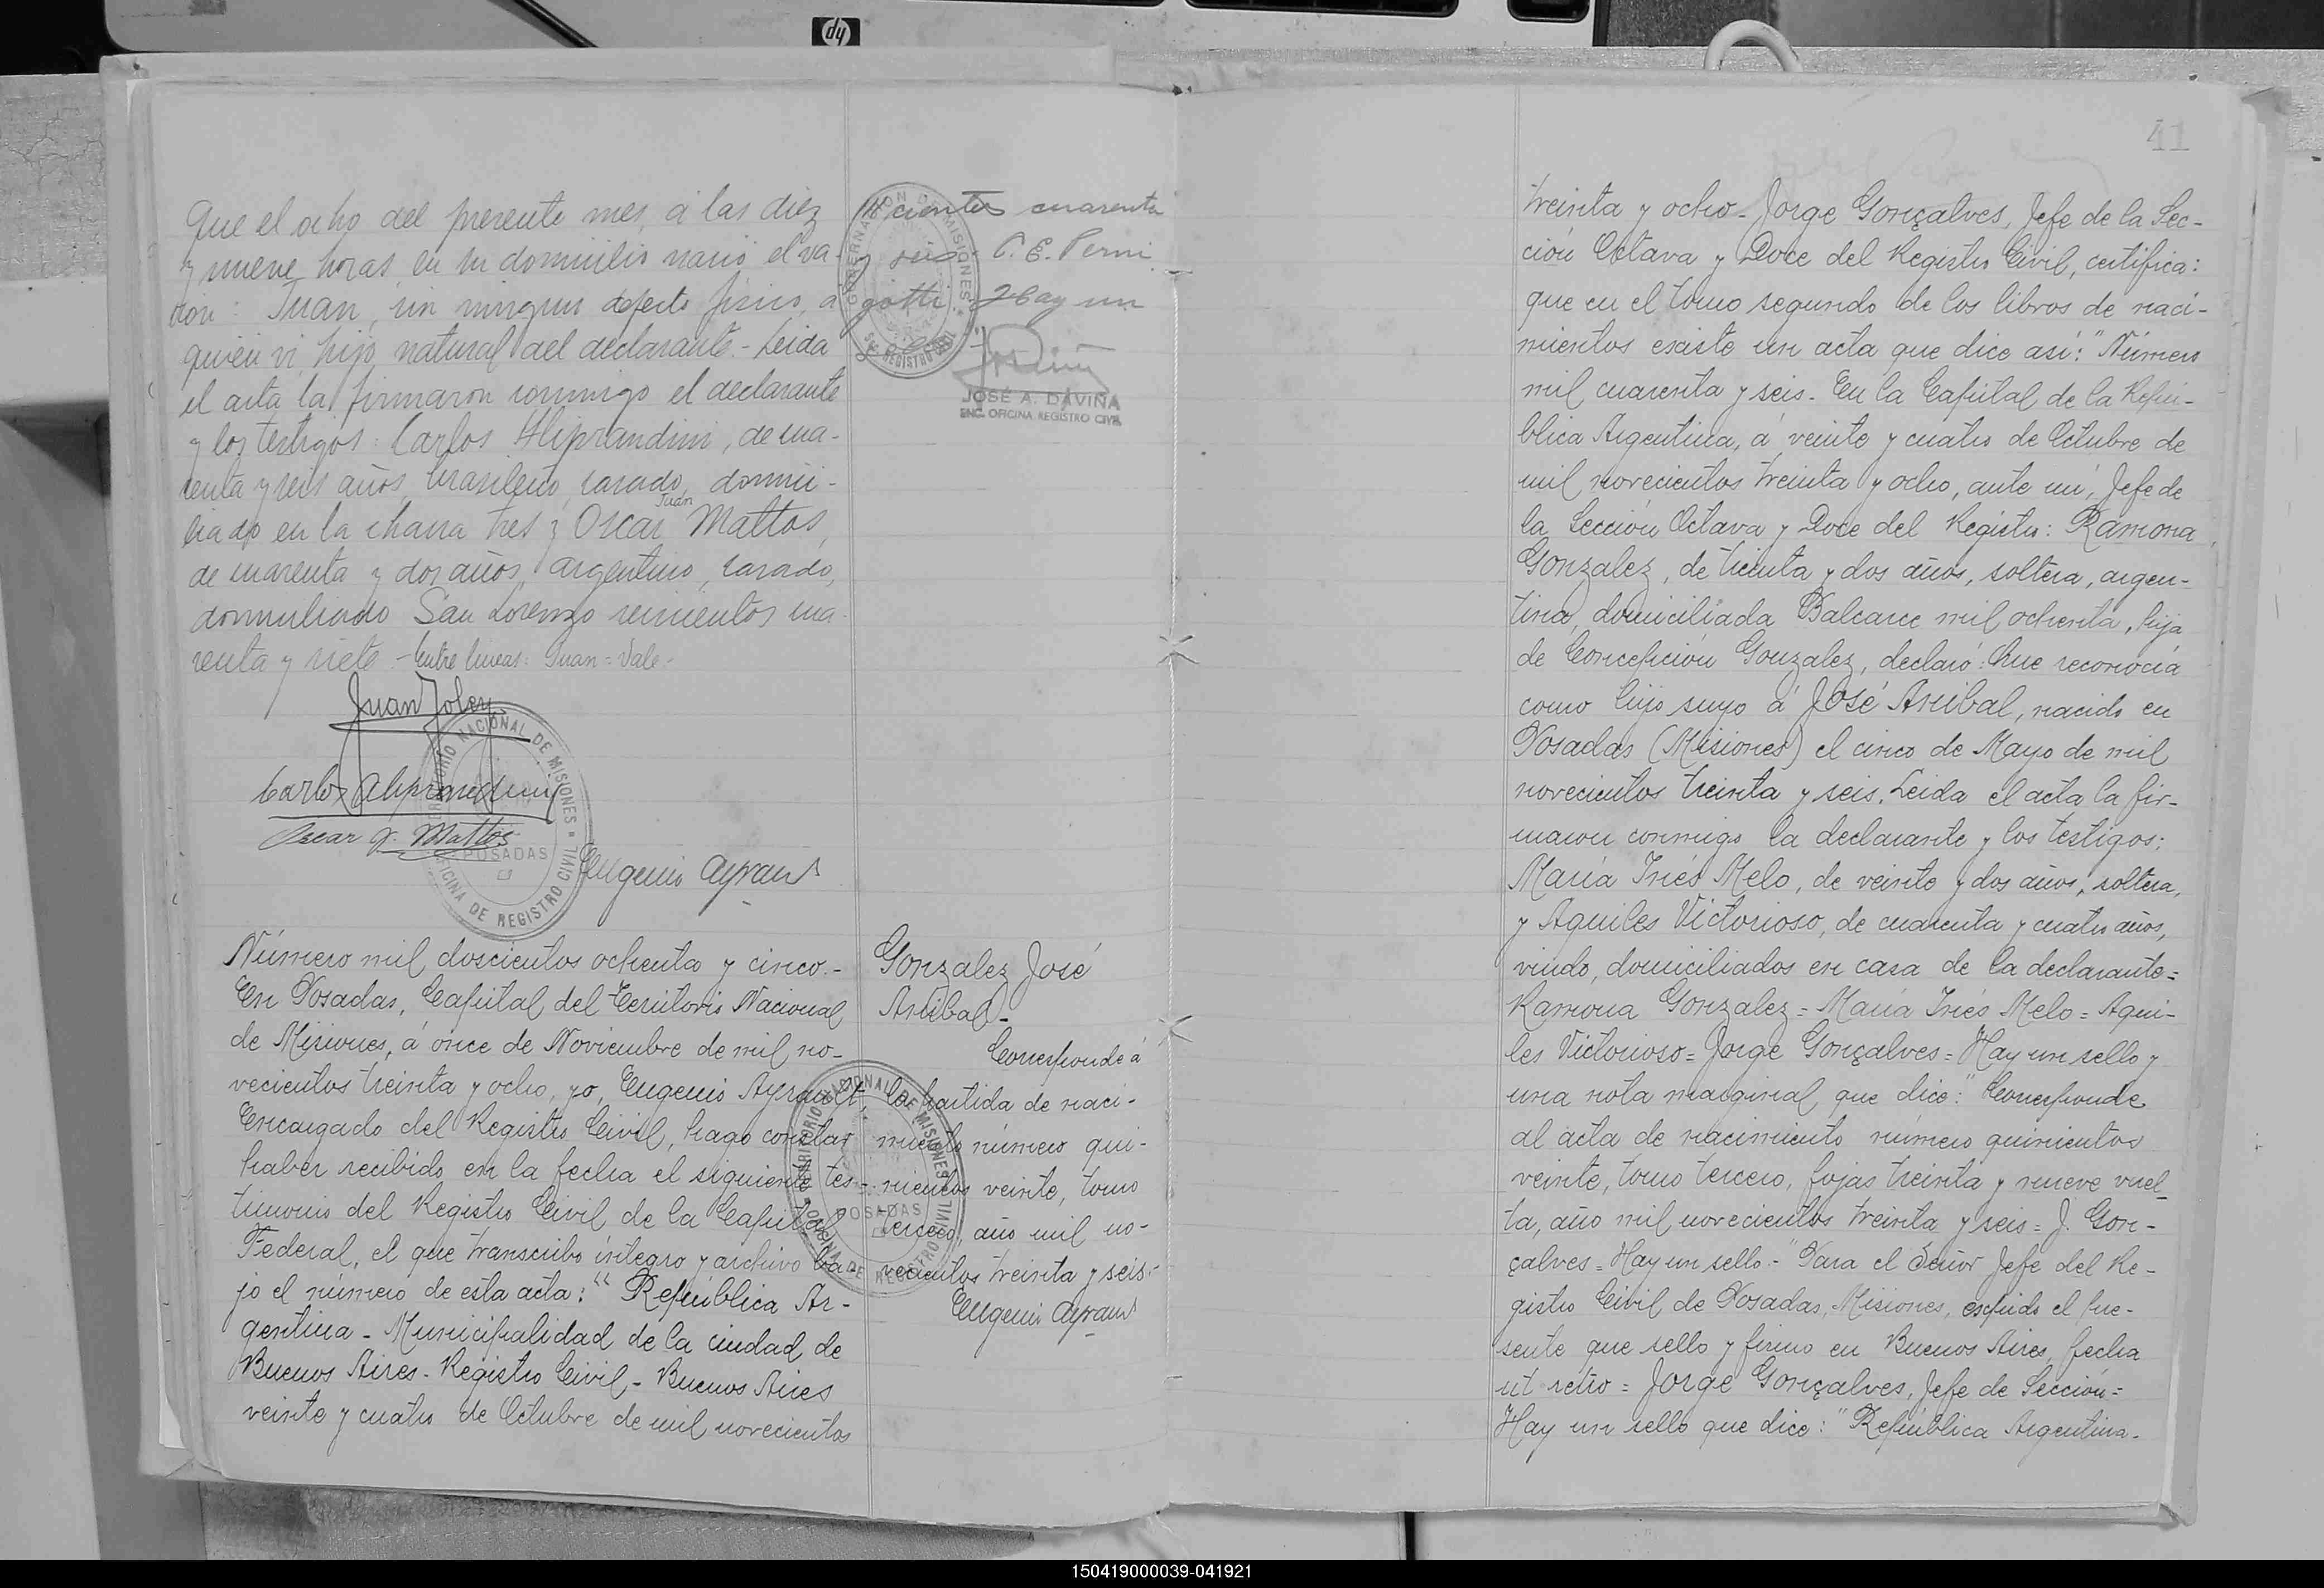 hp
Que el ocho del presente mes, á las diez
y nueve horas, en su domicilio nació el va-
rón: Juan, sin ningun defecto físico, á
quien ví, hijo natural del declarante.- Leida
el acta la firmaron conmigo el declarante
y los testigos: Carlos Aliprandini, de cua-
renta y seis años, brasileño, casado, domici-
liado en la chacra tres y Oscar Juan Mattos,
de cuarenta y dos años, argentino, casado,
domiciliado San Lorenzo seiscientos cua-
renta y siete.- Entre lineas: Juan = Vale.-
Juan Foley
Carlos Aliprandini
Oscar J. Mattos
Eugenio Ayrault
TERRITORIO NACIONAL DE MISIONES
POSADAS
OFICINA DE REGISTRO CIVIL
cientos cuarenta
y seis. C. E. Perni
gotti. Hay un
GOBERNACION DE MISIONES
REGISTRO CIVIL
JOSÉ A. DAVIÑA
ENC. OFICINA REGISTRO CIVIL
Número mil doscientos ochenta y cinco.-
En Posadas, Capital del Territorio Nacional
de Misiones, á once de Noviembre de mil no-
vecientos treinta y ocho, yo, Eugenio Ayrault,
Encargado del Registro Civil, hago constar
haber recibido en la fecha el siguiente tes-
timonio del Registro Civil de la Capital
Federal, el que transcribo íntegro y archivo ba-
jo el número de esta acta: "República Ar-
gentina - Municipalidad de la ciudad de
Buenos Aires - Registro Civil - Buenos Aires
veinte y cuatro de Octubre de mil novecientos
Gonzalez José
Anibal.-
Corresponde á
la partida de naci-
miento número qui-
nientos veinte, tomo
tercero, año mil no-
vecientos treinta y seis.-
Eugenio Ayrault
TERRITORIO NACIONAL DE MISIONES
POSADAS
OFICINA DE REGISTRO CIVIL
41
treinta y ocho - Jorge Gonçalves, Jefe de la Sec-
ción Octava y Doce del Registro Civil, certifica:
que en el tomo segundo de los libros de naci-
mientos existe un acta que dice así: "Número
mil cuarenta y seis. En la Capital de la Repú-
blica Argentina, á veinte y cuatro de Octubre de
mil novecientos treinta y ocho, ante mí, Jefe de
la Sección Octava y Doce del Registro: Ramona
Gonzalez, de treinta y dos años, soltera, argen-
tina, domiciliada Balcarce mil ochenta, hija
de Concepción Gonzalez, declaró: Que reconocía
como hijo suyo á José Anibal, nacido en
Posadas (Misiones) el cinco de Mayo de mil
novecientos treinta y seis. Leida el acta la fir-
maron conmigo la declarante y los testigos:
María Inés Melo, de veinte y dos años, soltera,
y Aquiles Victorioso, de cuarenta y cuatro años,
viudo, domiciliados en casa de la declarante =
Ramona Gonzalez = María Inés Melo = Aqui-
les Victorioso = Jorge Gonçalves = Hay un sello y
una nota marginal que dice: "Corresponde
al acta de nacimiento número quinientos
veinte, tomo tercero, fojas treinta y nueve vuel-
ta, año mil novecientos treinta y seis = J. Gon-
çalves = Hay un sello.-" Para el Señor Jefe del Re-
gistro Civil de Posadas, Misiones, expido el pre-
sente que sello y firmo en Buenos Aires, fecha
ut retro = Jorge Gonçalves, Jefe de Sección =
Hay un sello que dice: "República Argentina.-
150419000039-041921